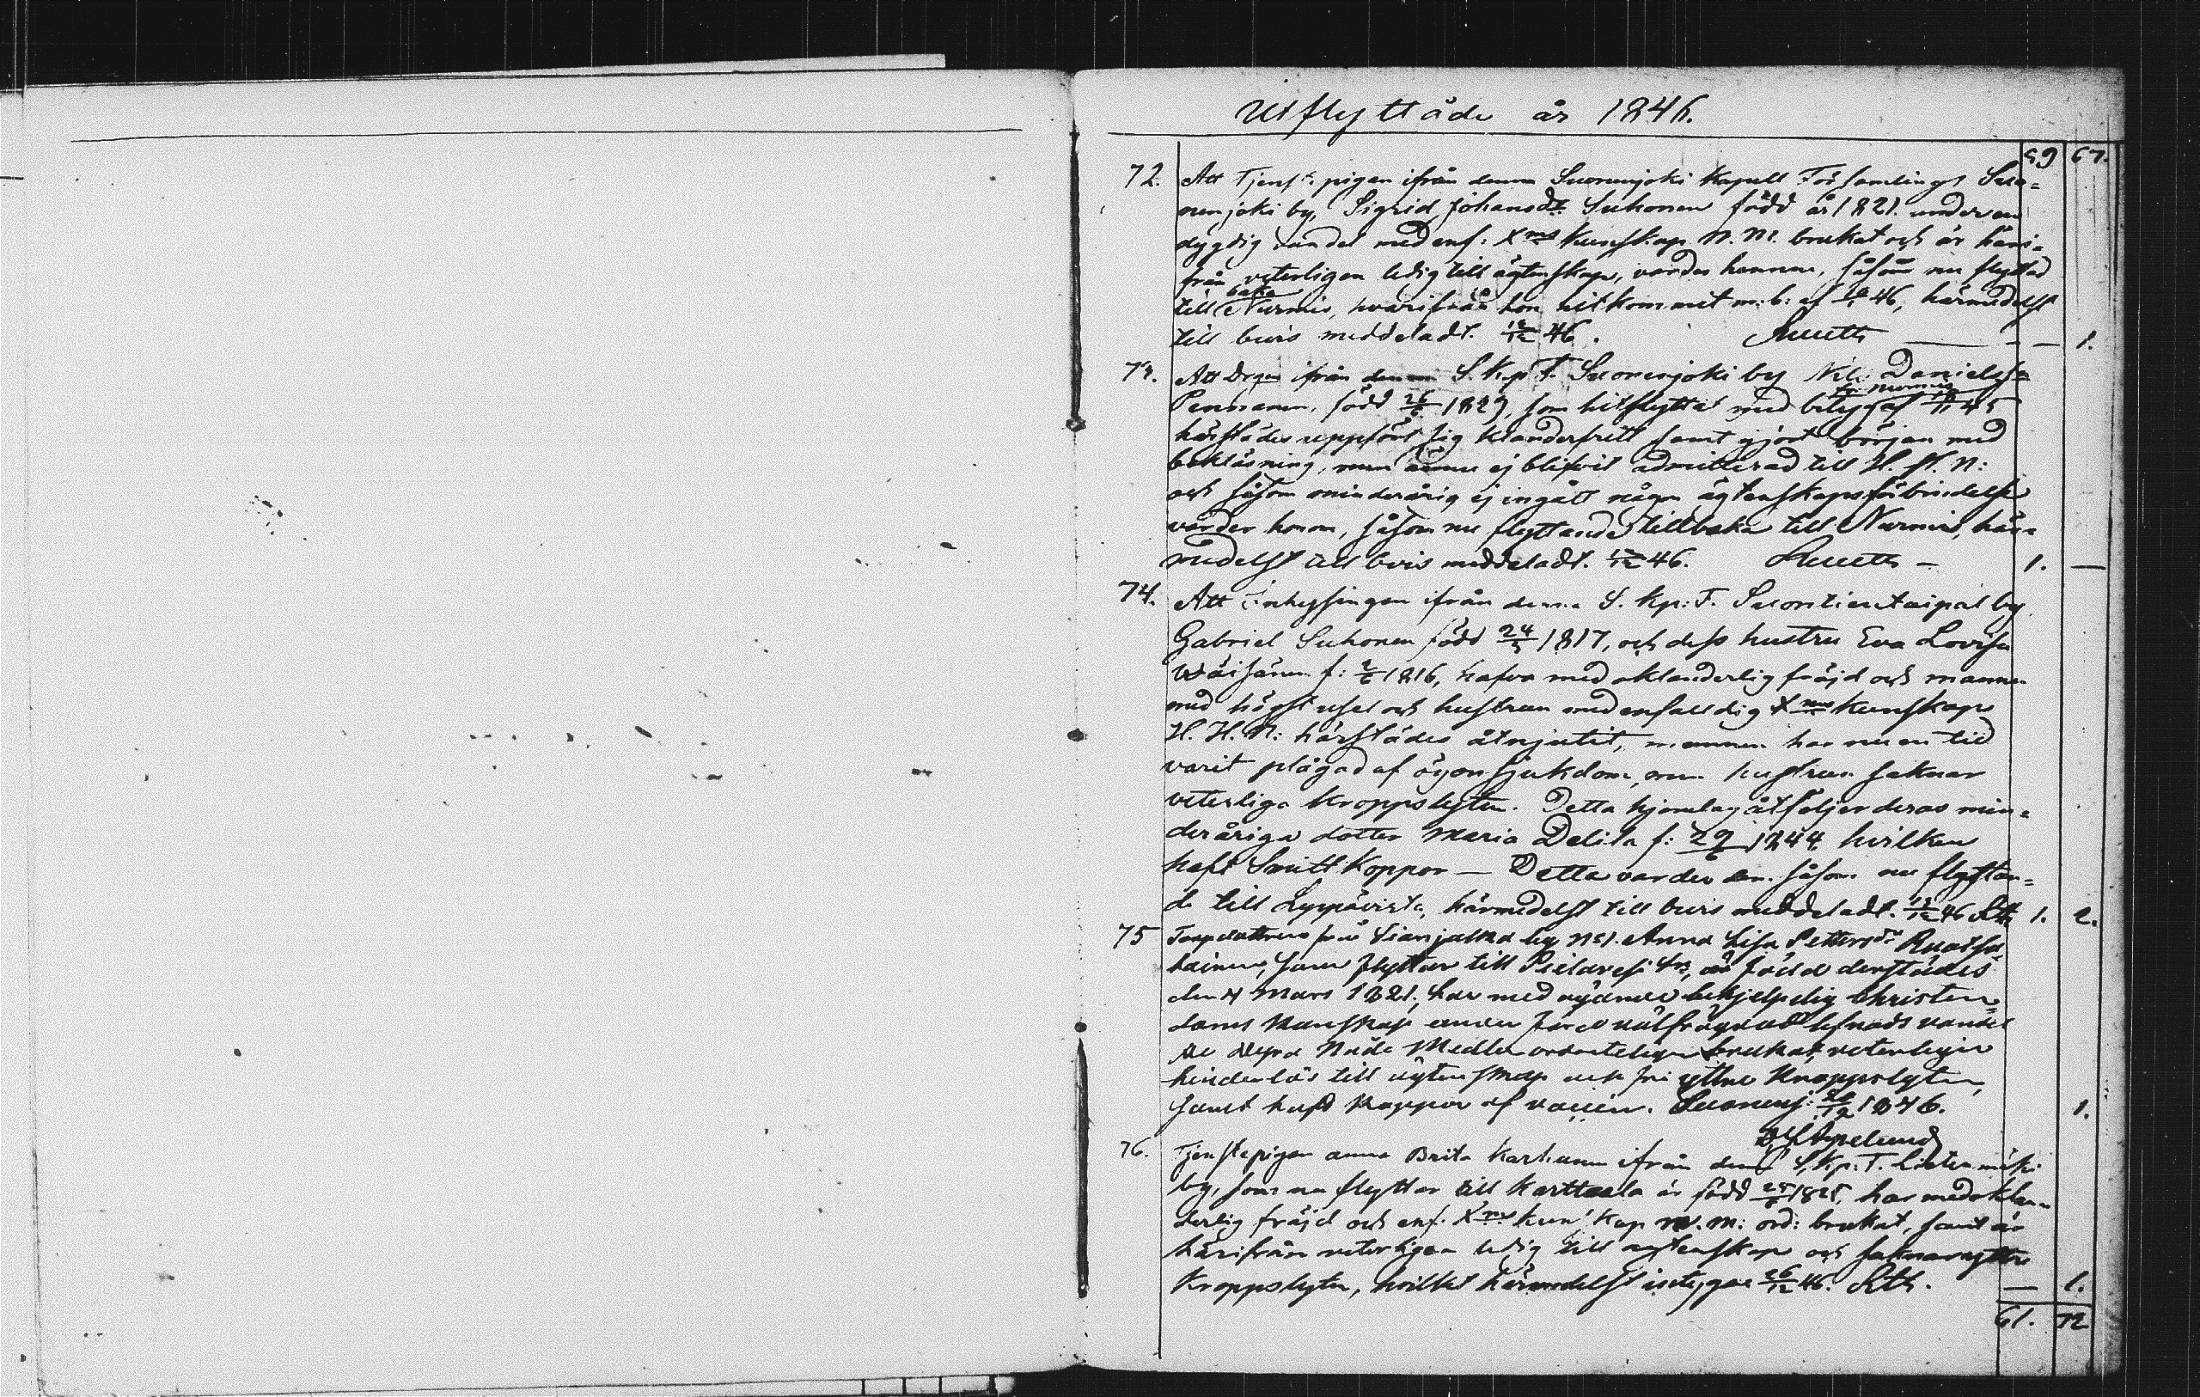 Utflyttade år 1846.
59 67.
72. Att Tjenst. pigan ifrån denna Suonenjoki Kapell Församlings Suo=
nenjoki by, Sigrid Johansdr Suhonen född år 1821. under en
dygdig vandel med enf: Xms Kunskap N. M. brukat och är häri=
från veterligen ledig till ägtenskap, varder henne, såsom nu flyttad
till baka Nurmis, hvarifrån hon hitkommit m: b: af 46, härmedelst
till bevis meddeladt. 46. 1.
73. Att Drgen ifrån denna S. Kp. F. Suonenjoki by Nils Danielss.
Pennanen, född 26/6 1829, som hitflyttat med betyg af Nurmis 45
härstädes uppfört sig klanderfritt samt gjort början med
bokläsning, men ännu ej blifvit admitterad till H. H. N:
och såsom minderårig ej ingått någon ägtenskapsförbindelse
varder honom, såsom nu flyttande tillbaka till Nurmis, här=
medelst till bevis meddeladt. 46. 1. —
74. Att Inhysingen ifrån denna S. Kp: F. Suontientaipal by
Gabriel Suhonen född 24/5 1817, och dess hustru Eva Lovisa
Wäisänen f: 2/6 1816, hafva med oklanderlig fräjd och mannen
med högst usel och hustrun med enfalldig Xms Kunskap
H. H. N: härstädes åtnjutit, mannen har nu en tid
varit plågad af ögonsjukdom, men hustrun saknar
veterliga kroppslyten. Detta hjonelag åtföljer deras min=
deråriga dotter Maria Delila f: 29/6 1844, hvilken
haft Smittkoppor — Detta varder dem såsom nu flyttan=
de till Leppävirta, härmedelst till bevis meddeladt. 13/12 46 1. 2.
75 Torpdottren från by N:1. Anna Lisa Pettersdr
som flyttar till Pielavesi, är född derstädes
den 4 Mars 1821, har med nöjande behjelpelig Christen=
doms kunskap under förd välfräjdad lefnads vandel
de dyra Nåde Medlen ordenteligen brukat, veterligen
hinderlös till ägtenskap och fri yttre kroppslyten,
samt haft koppor af vaccin. Suonenj: 20/12 1846. 1.
76. Tjenstepigan Anna Brita Karhunen ifrån denna S. Kp: F.
by, som nu flyttar till Karttula är född har med oklan=
derlig fräjd och enf. Xms kunskap N. M: ord: brukat, samt är
härifrån veterligen ledig till ägtenskap och saknar yttre
kroppslyten, hvilket härmedelst intygas 26/12 46. — 1.
61. 72